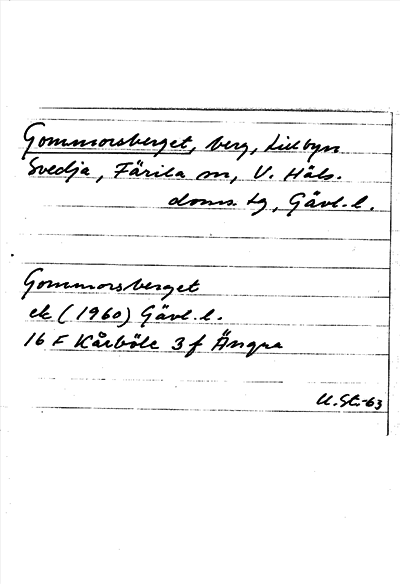 Gommorsberget, berg, Lillbyn
Svedja, Färila sn, V. Häls.
doms. tg, Gävl. l.
Gommorsberget
ek (1960) Gävl. l.
16 F Kårböle 3 f Ängra
U.St.-63